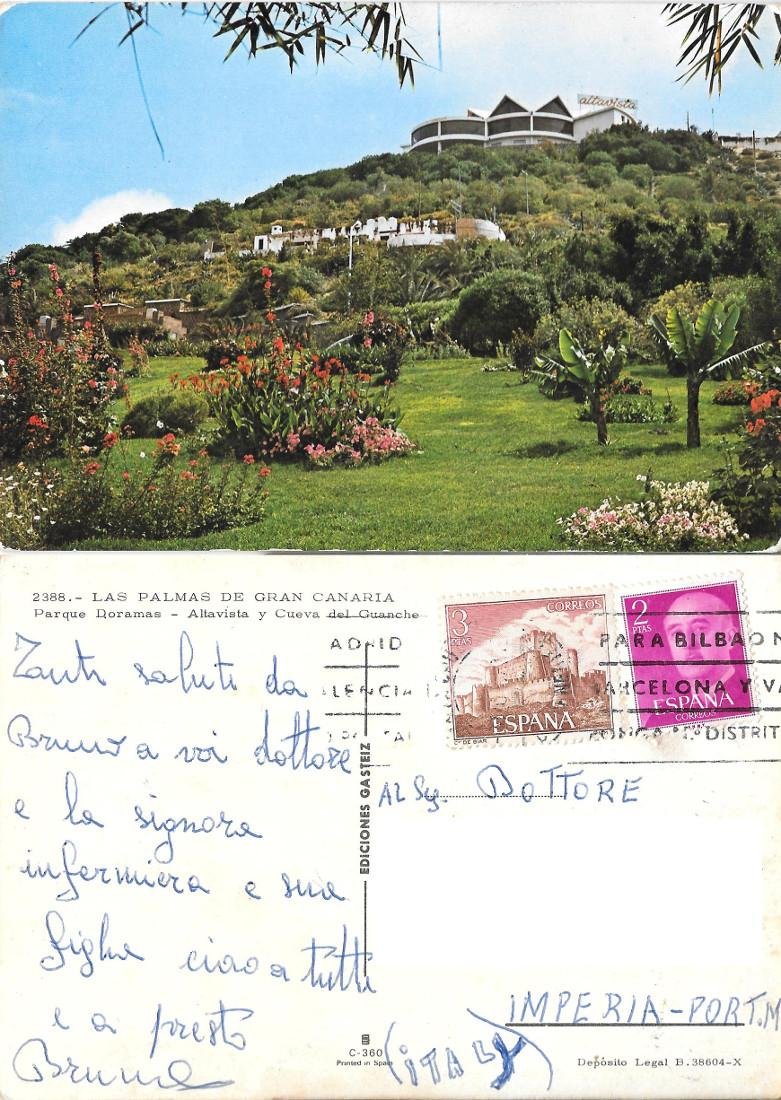 altavista
2388.- LAS PALMAS DE GRAN CANARIA
Parque Doramas - Altavista y Cueva del Guanche
Tanti saluti da
Bruno a voi dottore
e la signora
infermiera e sua
figlia ciao a tutti
e a presto
Bruno
EDICIONES GASTEIZ
C-360
Printed in Spain
3 PTAS
CORREOS
ESPAÑA
Cº DE BIAR
2 PTAS
ESPAÑA
CORREOS
ADRID
LENCIA
PARA BILBAO
BARCELONA Y VA
PONGA DISTRIT
AL Sg. DOTTORE
IMPERIA-PORT.M
(ITALY)
Depósito Legal B. 38604-X